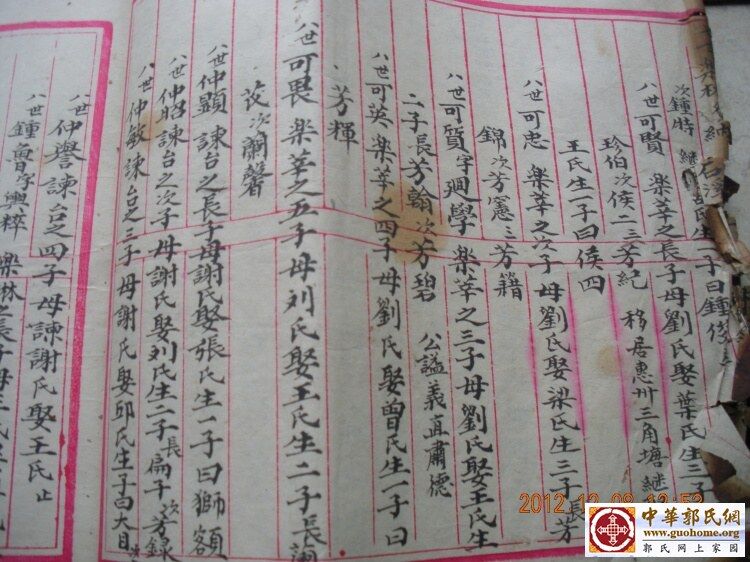 次鍾時 繼
氏生一子曰鍾俊
八世可賢 楽莘之長子母劉氏娶葉氏生三子
珍伯次俟二三芳紀 移居惠卅三角塘継
王氏生一子曰俟四
八世可忠 楽莘之次子母劉氏娶梁氏生三子長芳
錦次芳憲三芳籍
八世可質字廻學 楽莘之三子母劉氏娶王氏生
二子長芳翰次芳碧 公謚義直肅德
八世可英 楽莘之四子母劉氏娶曾氏生一子曰
芳輝
八世可畏 楽莘之五子母刘氏娶王氏生二子長
茂次蘭馨
八世仲顕 諫台之長子母謝氏娶張氏生一子曰獅額
八世仲昭 諫台之次子母謝氏娶刘氏生二子長扁子次芳録
八世仲敏 諫台之三子母謝氏娶邱氏生子曰大目
八世仲譽 諫台之四子母諫謝氏娶王氏止
八世鍾魯字興粹 楽林之長子母王氏
2012 12 08 12:52
中華郭氏網
www.guohome.org
郭氏网上家园